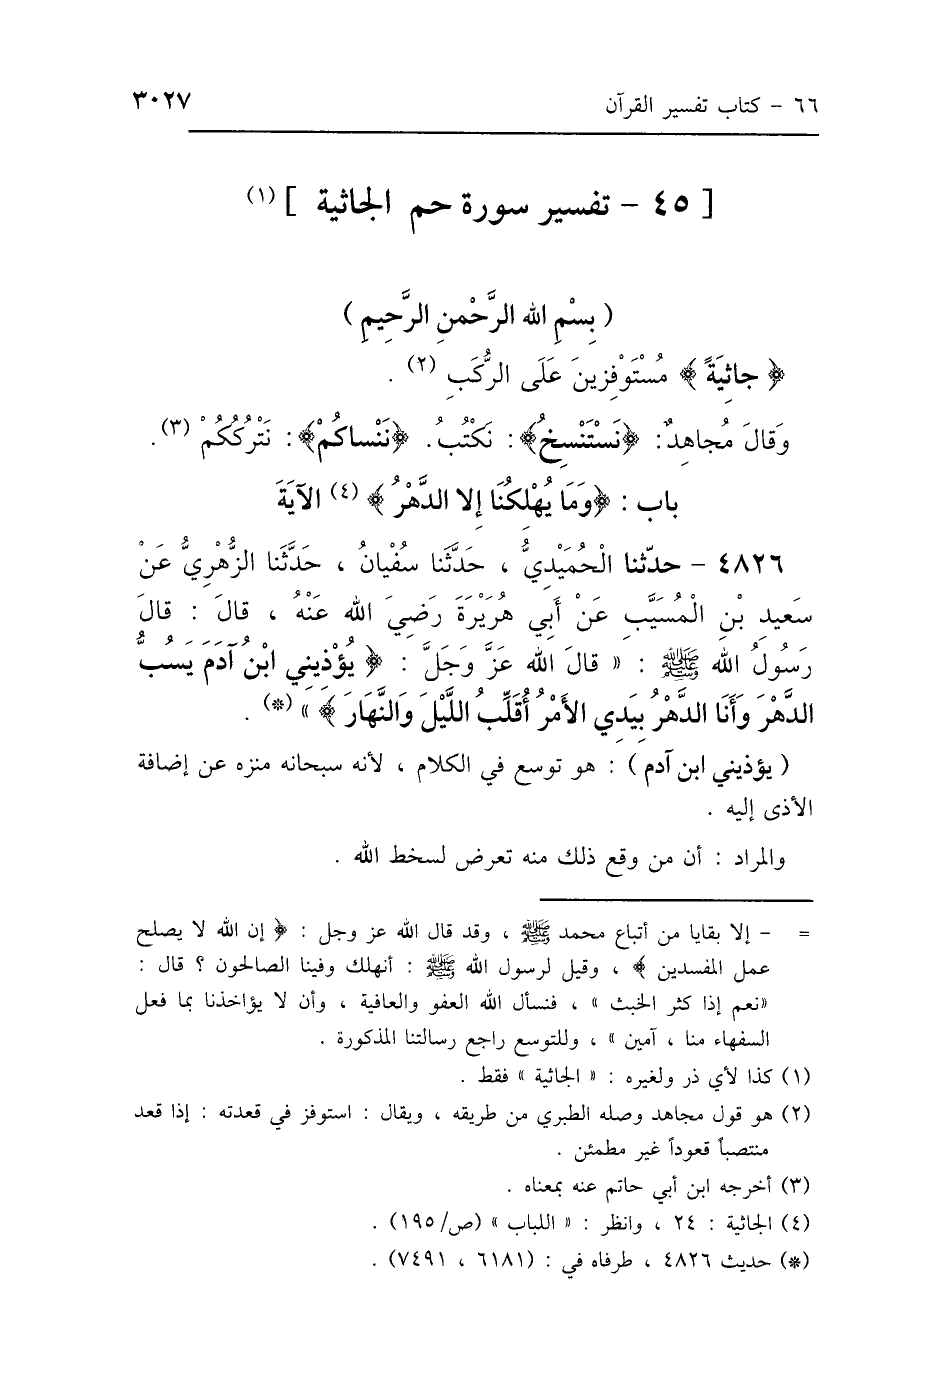 ٦٦ - كتاب تفسير القرآن ٣٠٢٧
[ ٤٥ - تفسير سورة حم الجاثية ] (١)
( بِسْمِ الله الرَّحْمنِ الرَّحِيمِ )
﴿ جاثِيَةً ﴾ مُسْتَوْفِزِينَ عَلَى الرُّكَبِ (٢) .
وَقالَ مُجاهِدٌ: ﴿نَسْتَنْسِخُ﴾: نَكْتُبُ. ﴿نَنْساكُمْ﴾: نَتْرُكُكُمْ (٣).
باب : ﴿وَمَا يُهْلِكُنَا إلا الدَّهْرُ ﴾ (٤) الآيَةَ
٤٨٢٦ - حدّثنا الْحُمَيْدِيُّ ، حَدَّثَنا سُفْيانُ ، حَدَّثَنا الزُّهْرِيُّ عَنْ
سَعِيدِ بْنِ الْمُسَيَّبِ عَنْ أَبِي هُرَيْرَةَ رَضِيَ الله عَنْهُ ، قالَ : قالَ
رَسُولُ الله ﷺ : « قالَ الله عَزَّ وَجَلَّ : ﴿ يُؤْذِينِي ابْنُ آدَمَ يَسُبُّ
الدَّهْرَ وَأَنَا الدَّهْرُ بِيَدِي الأَمْرُ أُقَلِّبُ اللَّيْلَ وَالنَّهَارَ ﴾ » (*) .
( يؤذيني ابن آدم ) : هو توسع في الكلام ، لأنه سبحانه منزه عن إضافة
الأذى إليه .
والمراد : أن من وقع ذلك منه تعرض لسخط الله .
= - إلا بقايا من أتباع محمد ﷺ ، وقد قال الله عز وجل : ﴿ إن الله لا يصلح
عمل المفسدين ﴾ ، وقيل لرسول الله ﷺ : أنهلك وفينا الصالحون ؟ قال :
«نعم إذا كثر الخبث » ، فنسأل الله العفو والعافية ، وأن لا يؤاخذنا بما فعل
السفهاء منا ، آمين » ، وللتوسع راجع رسالتنا المذكورة .
(١) كذا لأي ذر ولغيره : « الجاثية » فقط .
(٢) هو قول مجاهد وصله الطبري من طريقه ، ويقال : استوفز في قعدته : إذا قعد
منتصباً قعوداً غير مطمئن .
(٣) أخرجه ابن أبي حاتم عنه بمعناه .
(٤) الجاثية : ٢٤ ، وانظر : « اللباب » (ص/١٩٥) .
(*) حديث ٤٨٢٦ ، طرفاه في : (٦١٨١ ، ٧٤٩١) .